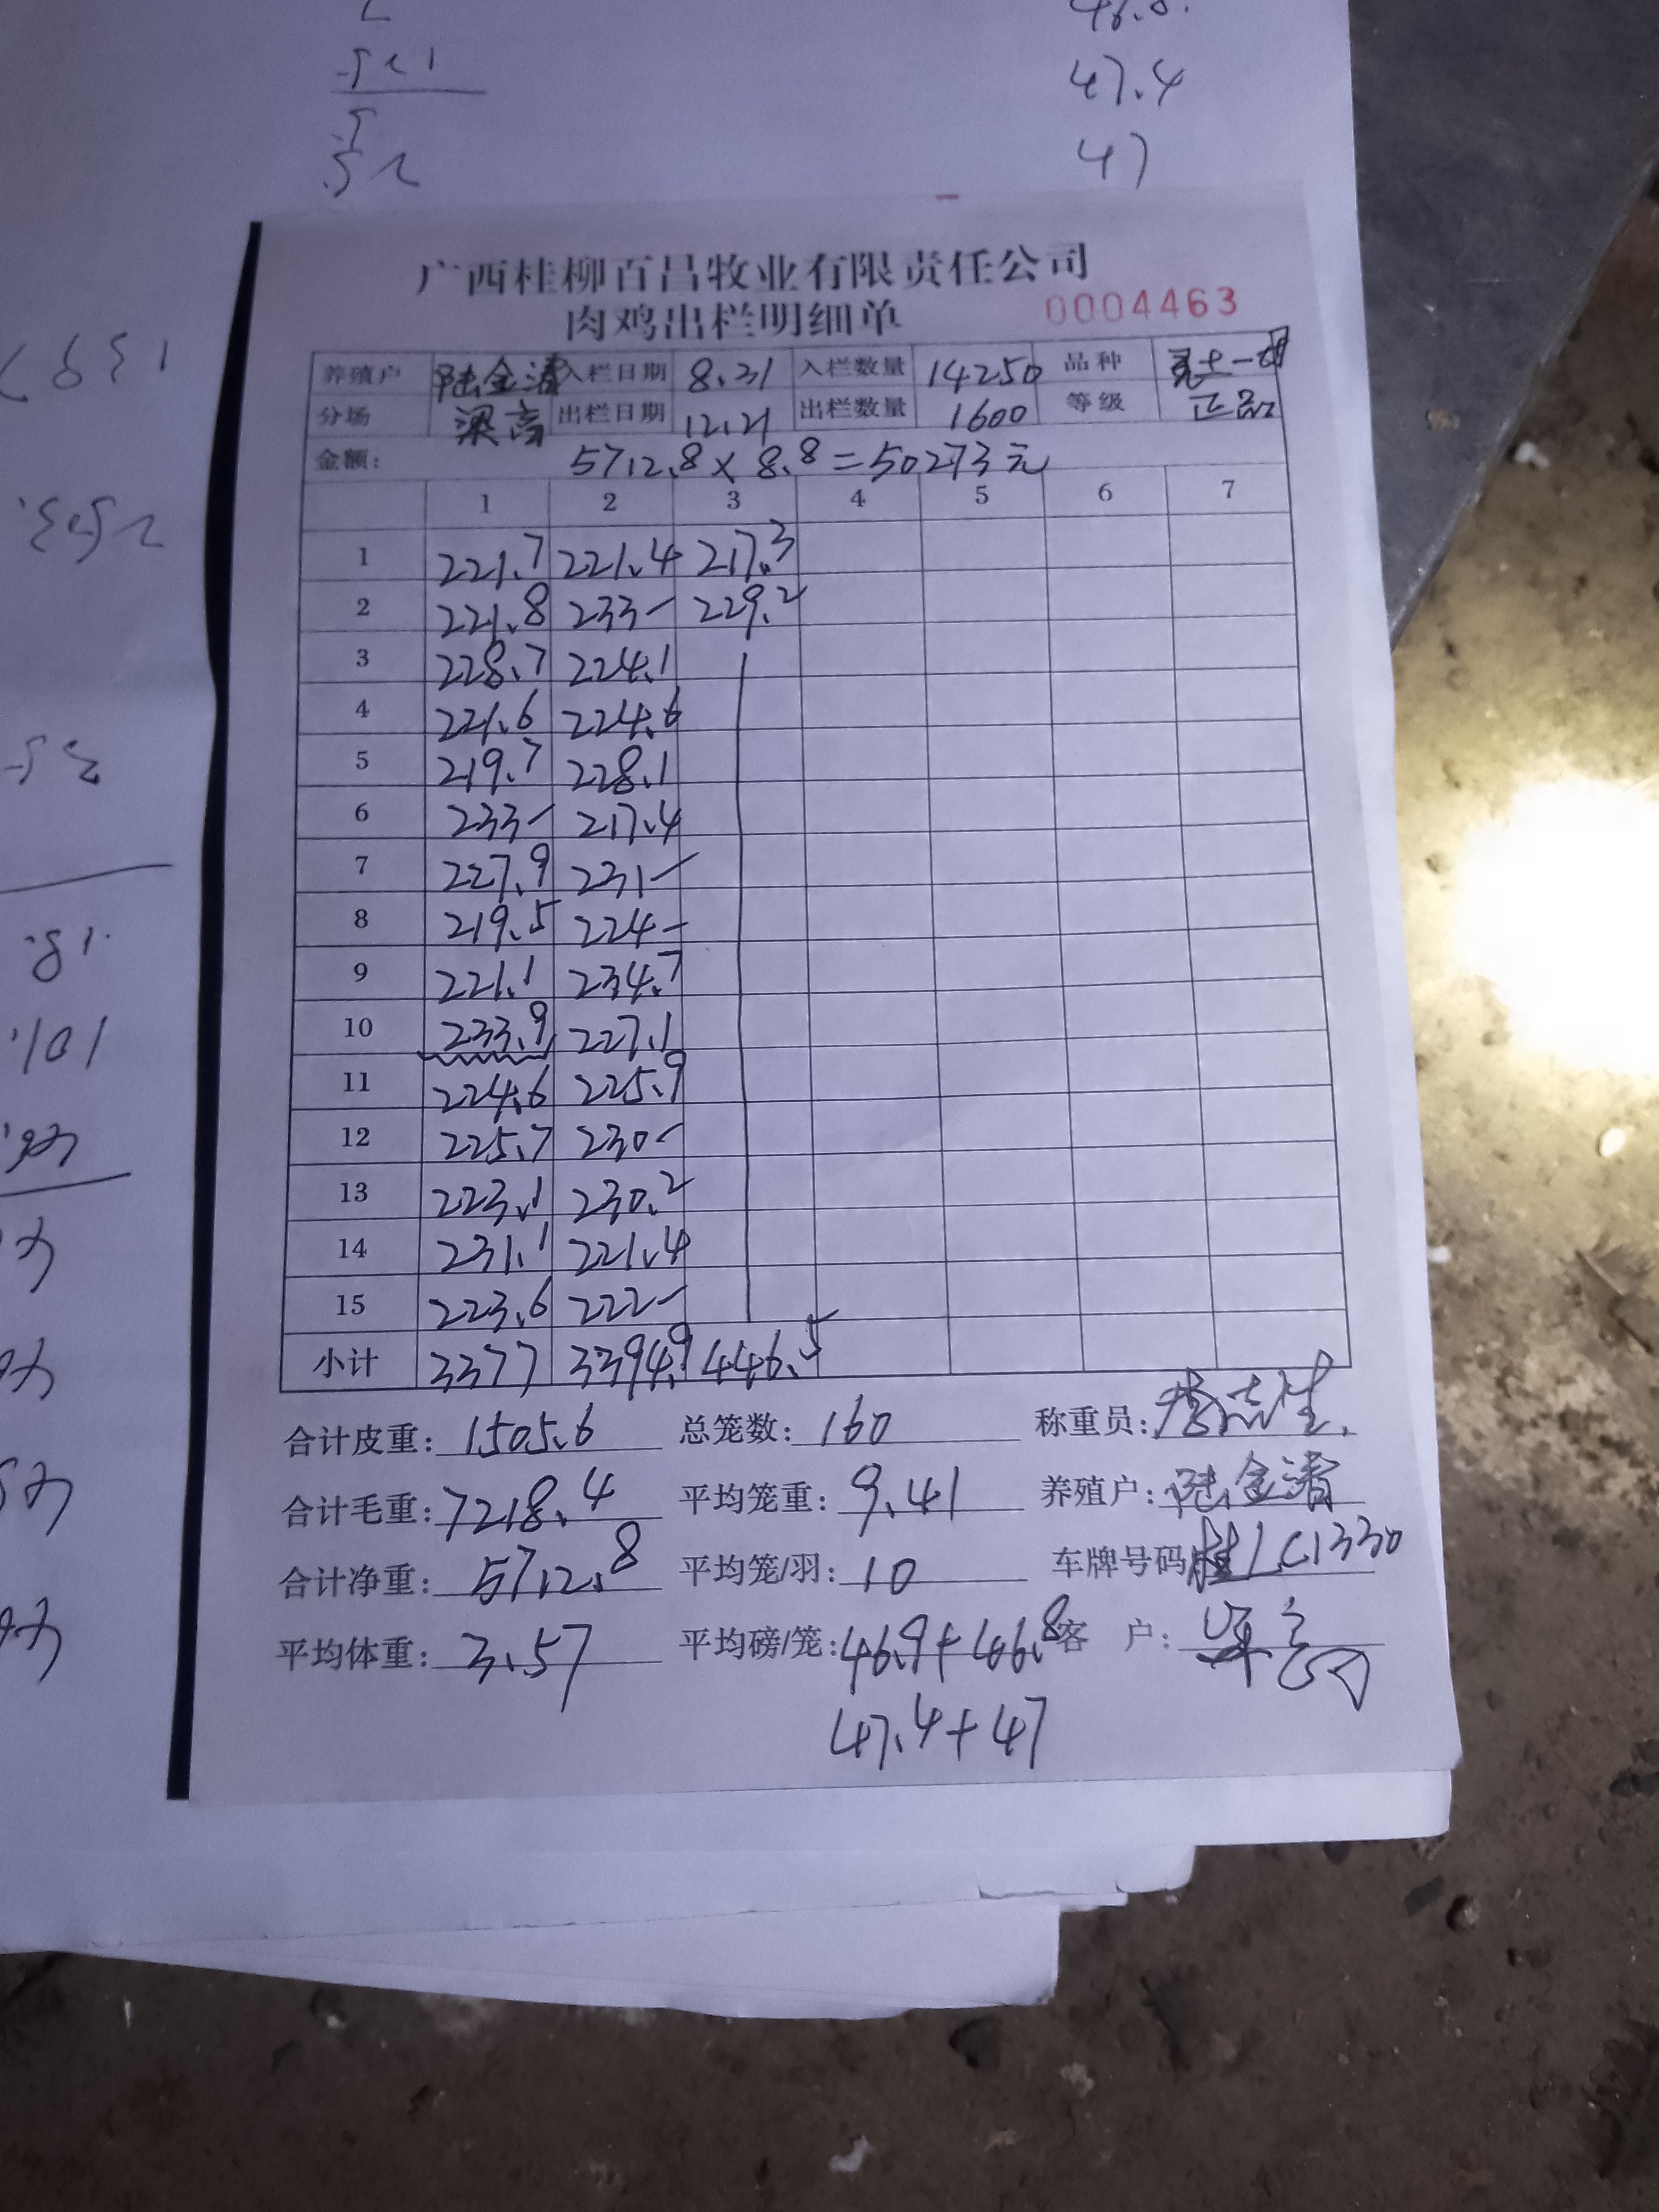 47.4
47
广西桂柳百昌牧业有限责任公司
肉鸡出栏明细单 0004463
养殖户 陆金清 入栏日期 8.31 入栏数量 14250 品种
分场 梁高 出栏日期 12.21 出栏数量 1600 等级 正品
金额: 5712.8×8.8=50273元
1 2 3 4 5 6 7
1 221.7 221.4 217.3
2 221.8 233- 229.2
3 228.7 224.1
4 221.6 224.6
5 219.7 228.1
6 233- 217.4
7 227.9 231-
8 219.5 224-
9 221.1 234.7
10 233.9 227.1
11 224.6 225.9
12 225.7 230-
13 223.1 230.2
14 231.1 221.4
15 223.6 222-
小计 3377 3394.9 446.5
合计皮重: 1505.6 总笼数: 160 称重员:
合计毛重: 7218.4 平均笼重: 9.41 养殖户: 陆金清
合计净重: 5712.8 平均笼/羽: 10 车牌号码 桂LC1330
平均体重: 3.57 平均磅/笼: 46.9+46.8 客 户:
47.4+47